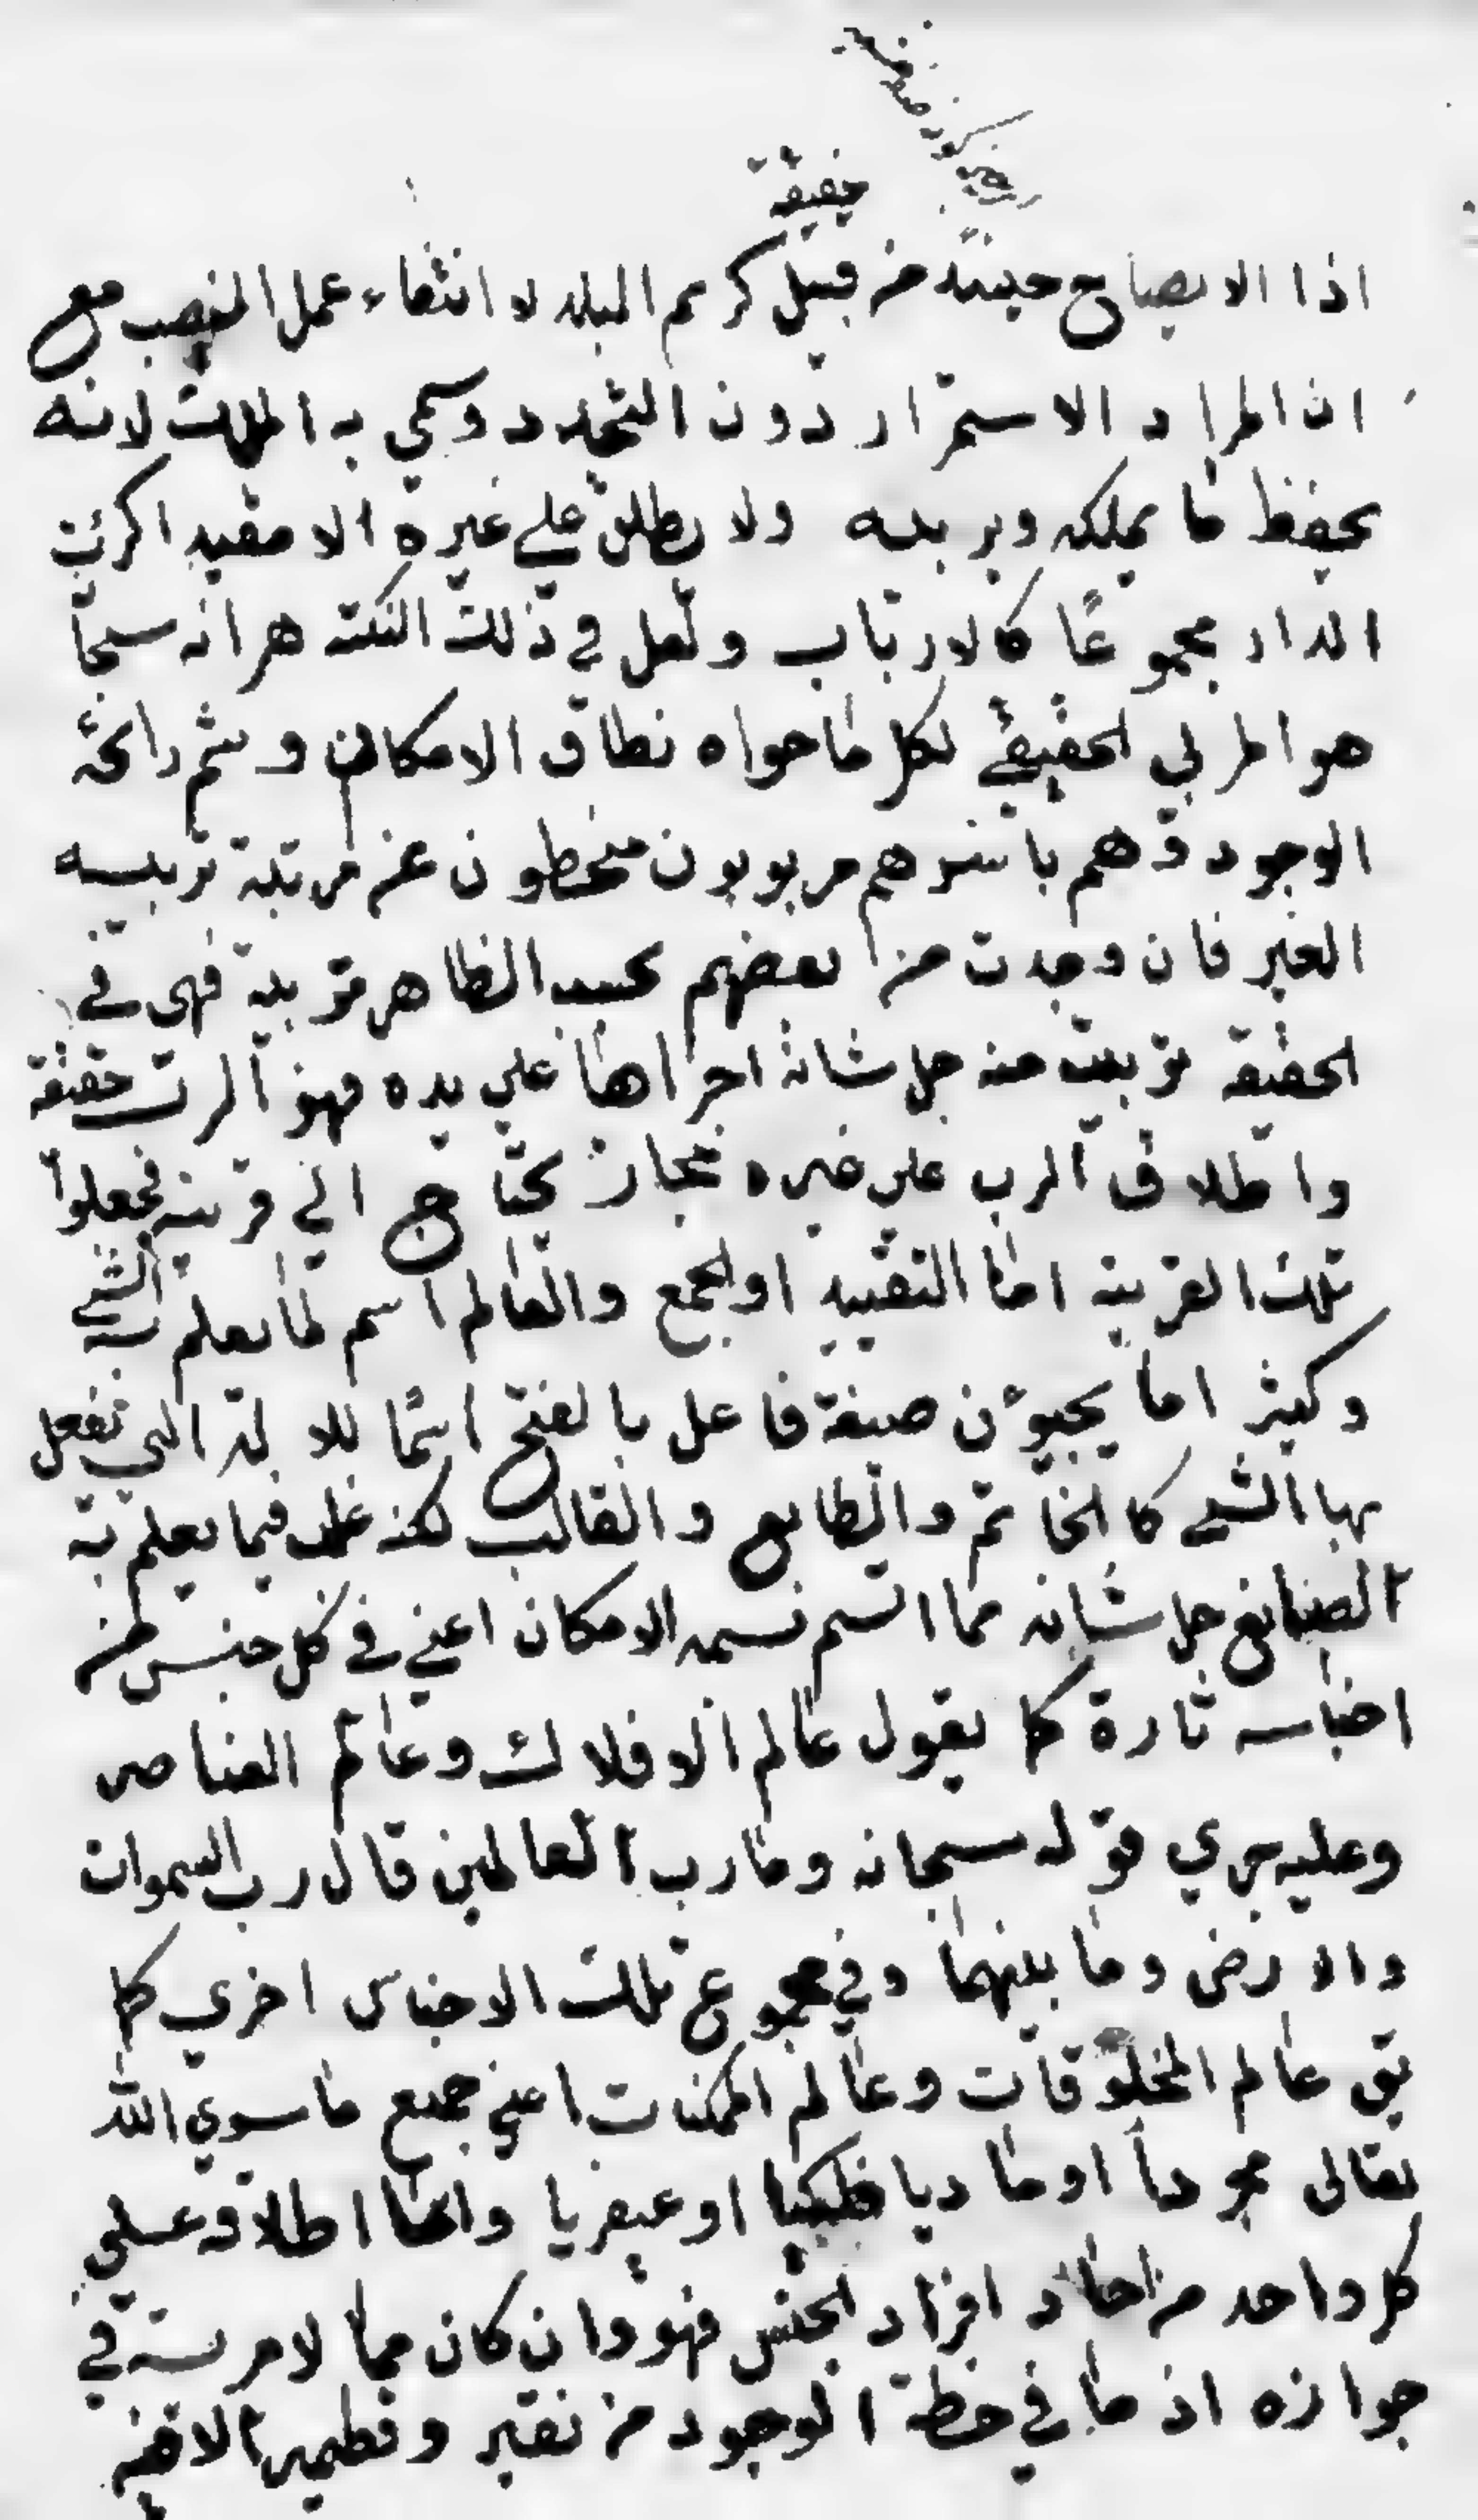 حقيقة
اذا الايضاح حينئذ من قبيل كريم البلد لا انتفاء عمل النصب مع
ان المراد الاستمرار دون التجدد وسمي به المالك لانه
يحفظ ما يملكه ويربيه ولا يطلق على غيره الا مقيدا كرب
الدار مجموعًا كالارباب ولعل في ذلك النكتة هي انه سبحا
هو المربي الحقيقي لكل ما حواه نطاق الامكان وشم رائحة
الوجود وهم باسرهم مربوبون منحطون عن مرتبة تربية
الغير فان وجدت من بعضهم بحسب الظاهر تربية فهي في
الحقيقة تربية منه جل شانه اجراها على يده فهو الرب حقيقة
واطلاق الرب على غيره مجاز يحتاج الى قرينة فجعلوا
تلك القرينة اما التقييد او الجمع والعالم اسم لما يعلم به الشي
وكثيرا ما يجيؤن صيغة فاعل بالفتح اسمًا للالة التي تفعل
بها الشي كالخاتم والطابع والقالب لكنه غلب فيما يعلم به
الصانع جل شانه مما اتسم بسمة الامكان اعني في كل جنس من
اجناسه تارة كما يقول عالم الافلاك وعالم العناصر
وعليه جرى قوله سبحانه وما رب العالمين قال رب السموات
والارض وما بينهما وفي مجموع تلك الاجناس اخرى كما
يق عالم المخلوقات وعالم الممكنات اعني جميع ما سوى الله
تعالى مجردا او ماديا فلكيا او عنصريا واما اطلاقه على
كل واحد من احاد افراد الجنس فهو وان كان مما لا مرية في
جوازه اذ ما في خطة الوجود من نقير وقطمير الا فيه